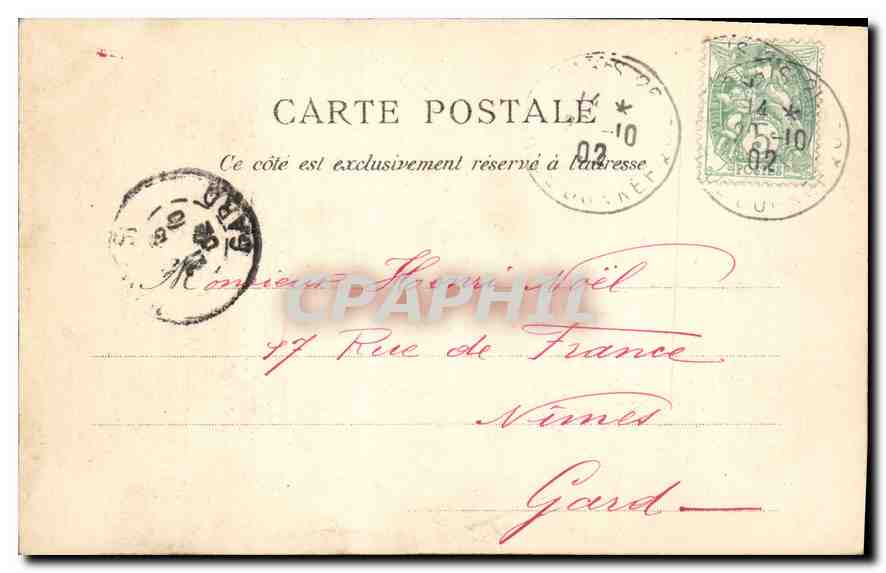 CARTE POSTALE
Ce côté est exclusivement réservé à l'adresse
14
-10
02
14
-10
02
5
POSTES
GARD
CPAPHIL
Monsieur Henri Noël
17 Rue de France
Nîmes
Gard